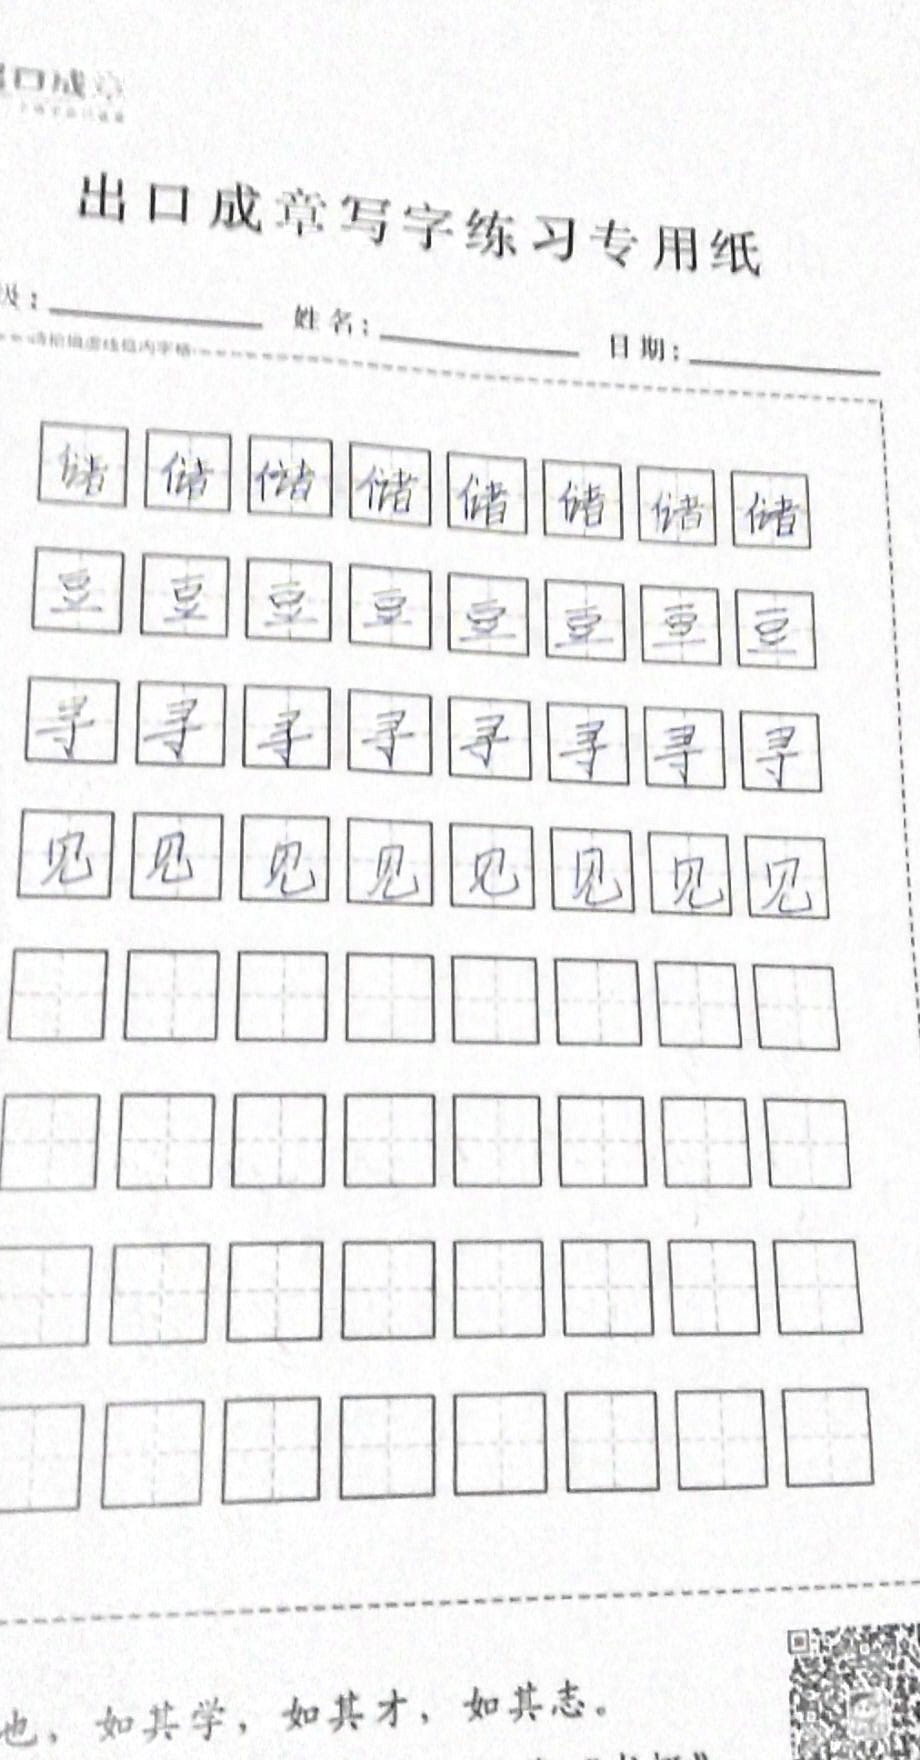 口成章
出口成章写字练习专用纸
姓名： 日期：
请拍摄虚线框内字格
储 储 储 储 储 储 储 储
豆 豆 豆 豆 豆 豆 豆 豆
寻 寻 寻 寻 寻 寻 寻 寻
见 见 见 见 见 见 见 见
也，如其学，如其才，如其志。